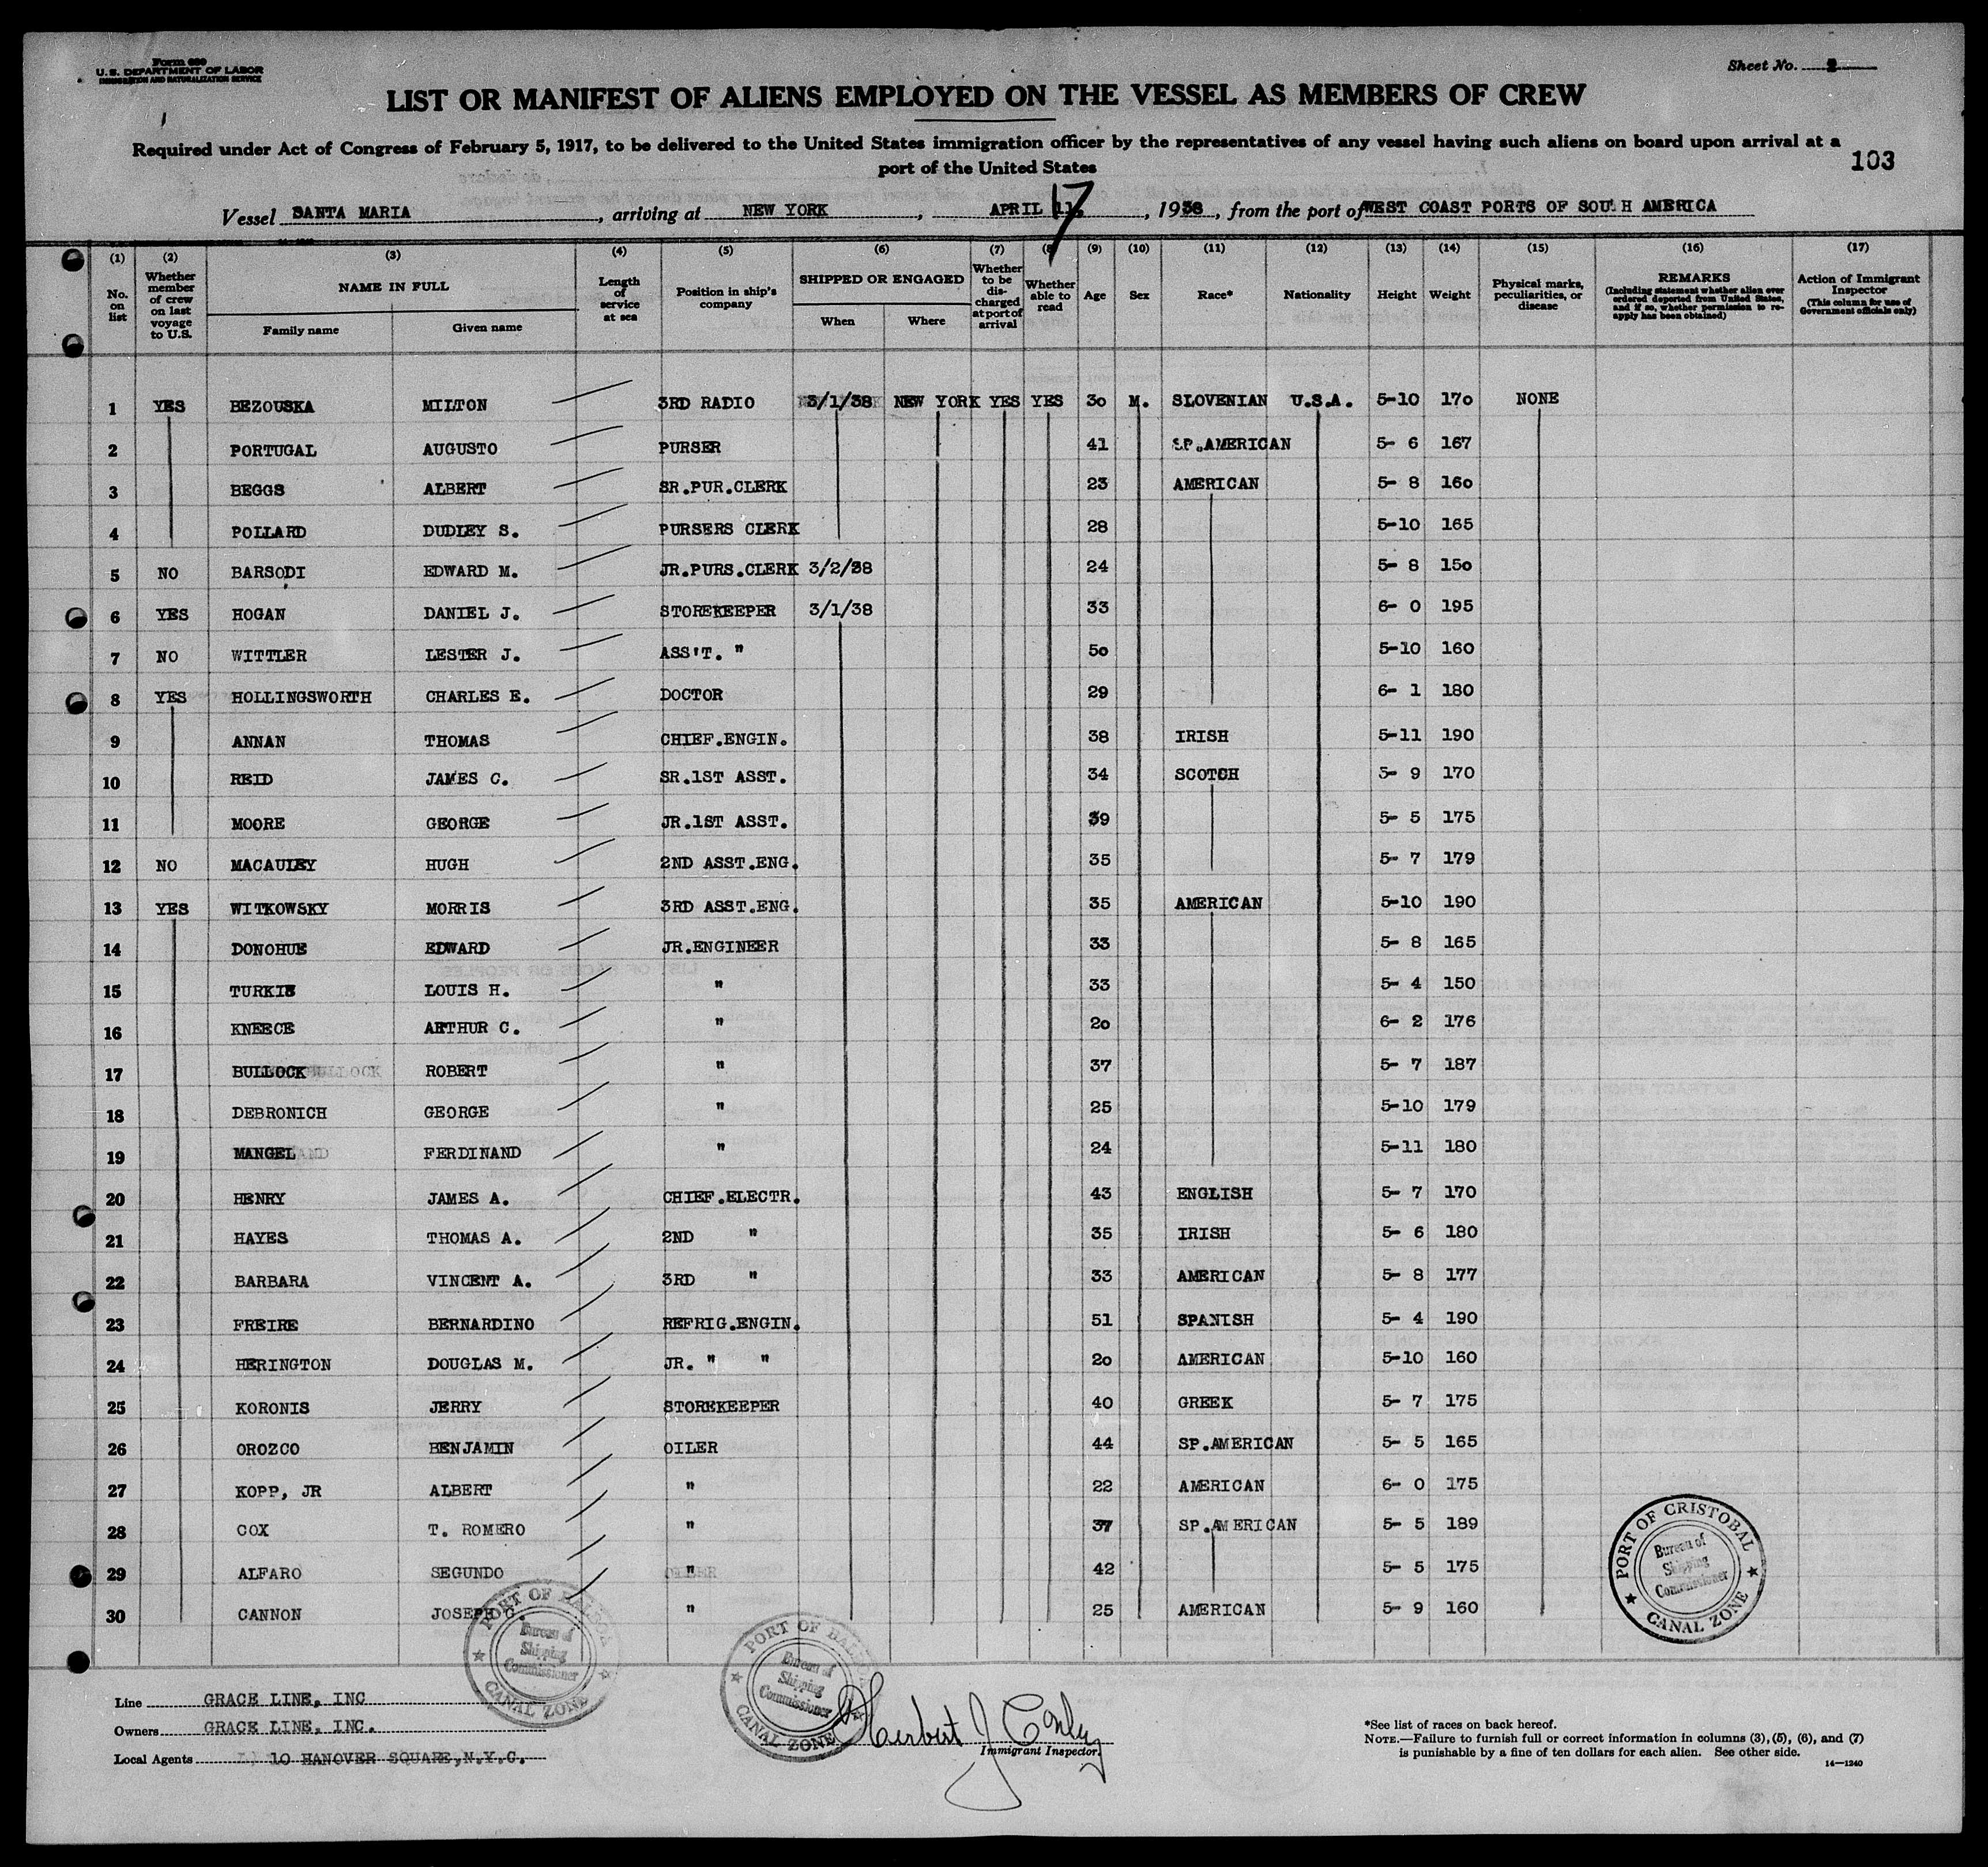 Form 680
U. S. DEPARTMENT OF LABOR
IMMIGRATION AND NATURALIZATION SERVICE
Sheet No. 2
LIST OR MANIFEST OF ALIENS EMPLOYED ON THE VESSEL AS MEMBERS OF CREW
Required under Act of Congress of February 5, 1917, to be delivered to the United States immigration officer by the representatives of any vessel having such aliens on board upon arrival at a
port of the United States
103
Vessel SANTA MARIA, arriving at NEW YORK, APRIL 11, 17, 1938, from the port of WEST COAST PORTS OF SOUTH AMERICA
(1) (2) (3) (4) (5) (6) (7) (8) (9) (10) (11) (12) (13) (14) (15) (16) (17)
No. on list
Whether member of crew on last voyage to U.S.
NAME IN FULL
Family name Given name
Length of service at sea
Position in ship's company
SHIPPED OR ENGAGED
When Where
Whether to be discharged at port of arrival
Whether able to read
Age Sex Race* Nationality Height Weight
Physical marks, peculiarities, or disease
REMARKS
(Including statement whether alien ever ordered deported from United States, and if so, whether permission to reapply has been obtained)
Action of Immigrant Inspector
(This column for use of Government officials only)
1 YES BEZOUSKA MILTON 3RD RADIO 3/1/38 NEW YORK YES YES 30 M. SLOVENIAN U.S.A. 5-10 170 NONE
2 PORTUGAL AUGUSTO PURSER 41 SP.AMERICAN 5- 6 167
3 BEGGS ALBERT SR.PUR.CLERK 23 AMERICAN 5- 8 160
4 POLLARD DUDLEY S. PURSERS CLERK 28 5-10 165
5 NO BARSODI EDWARD M. JR.PURS.CLERK 3/2/38 24 5- 8 150
6 YES HOGAN DANIEL J. STOREKEEPER 3/1/38 33 6- 0 195
7 NO WITTLER LESTER J. ASS'T. " 50 5-10 160
8 YES HOLLINGSWORTH CHARLES E. DOCTOR 29 6- 1 180
9 ANNAN THOMAS CHIEF.ENGIN. 38 IRISH 5-11 190
10 REID JAMES C. SR.1ST ASST. 34 SCOTCH 5- 9 170
11 MOORE GEORGE JR.1ST ASST. 39 5- 5 175
12 NO MACAULEY HUGH 2ND ASST.ENG. 35 5- 7 179
13 YES WITKOWSKY MORRIS 3RD ASST.ENG. 35 AMERICAN 5-10 190
14 DONOHUE EDWARD JR.ENGINEER 33 5- 8 165
15 TURKIN LOUIS H. " 33 5- 4 150
16 KNEECE ARTHUR C. " 20 6- 2 176
17 BULLOCK ROBERT " 37 5- 7 187
18 DEBRONICH GEORGE " 25 5-10 179
19 MANGEL FERDINAND " 24 5-11 180
20 HENRY JAMES A. CHIEF.ELECTR. 43 ENGLISH 5- 7 170
21 HAYES THOMAS A. 2ND " 35 IRISH 5- 6 180
22 BARBARA VINCENT A. 3RD " 33 AMERICAN 5- 8 177
23 FREIRE BERNARDINO REFRIG.ENGIN. 51 SPANISH 5- 4 190
24 HERINGTON DOUGLAS M. JR. " " 20 AMERICAN 5-10 160
25 KORONIS JERRY STOREKEEPER 40 GREEK 5- 7 175
26 OROZCO BENJAMIN OILER 44 SP.AMERICAN 5- 5 165
27 KOPP, JR ALBERT " 22 AMERICAN 6- 0 175
28 COX T. ROMERO " 37 SP.AMERICAN 5- 5 189
29 ALFARO SEGUNDO " 42 5- 5 175
30 CANNON JOSEPH G. " 25 AMERICAN 5- 9 160
PORT OF CRISTOBAL Bureau of Shipping Commissioner CANAL ZONE
PORT OF BALBOA Bureau of Shipping Commissioner CANAL ZONE
PORT OF BALBOA Bureau of Shipping Commissioner CANAL ZONE
Line GRACE LINE, INC
Owners GRACE LINE, INC.
Local Agents 10 HANOVER SQUARE, N.Y.C.
Herbert J Conley
Immigrant Inspector
*See list of races on back hereof.
NOTE.—Failure to furnish full or correct information in columns (3), (5), (6), and (7)
is punishable by a fine of ten dollars for each alien. See other side.
14—1240